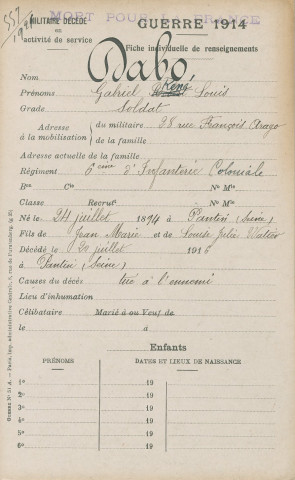 MORT POUR LA FRANCE
557
MILITAIRE DÉCÉDÉ
en
activité de service
GUERRE 1914
Fiche individuelle de renseignements
Nom Dabo
Prénoms Gabriel René Louis
Grade Soldat
Adresse à la mobilisation { du militaire 38 rue François Arago
de la famille
Adresse actuelle de la famille
Régiment 6ème d'Infanterie Coloniale
Bon Cie No Mle
Classe Recrut No Mle
Né le 24 juillet 1894 à Pantin (Seine)
Fils de Jean Marie et de Louise Julia Walter
Décédé le 29 juillet 1916
à Pantin (Seine)
Causes du décès tué à l'ennemi
Lieu d'inhumation
Célibataire Marié à ou Veuf de
le à
Enfants
PRÉNOMS DATES ET LIEUX DE NAISSANCE
1o 19
2o 19
3o 19
4o 19
5o 19
6o 19